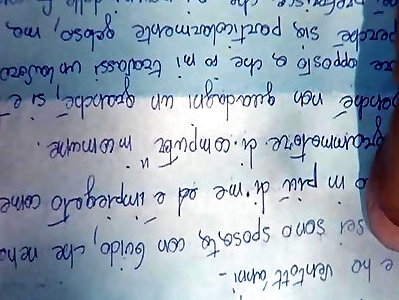 e ho ventott'anni -
sei sono sposata, con Guido, che ne ha
in più di me ed è impiegato come
grammatore di computer in comune.
non guadagni un granché, e si è
re opposto a che io mi trovassi un lavoro
perché sia, particolarmente geloso, ma,
preferisce che